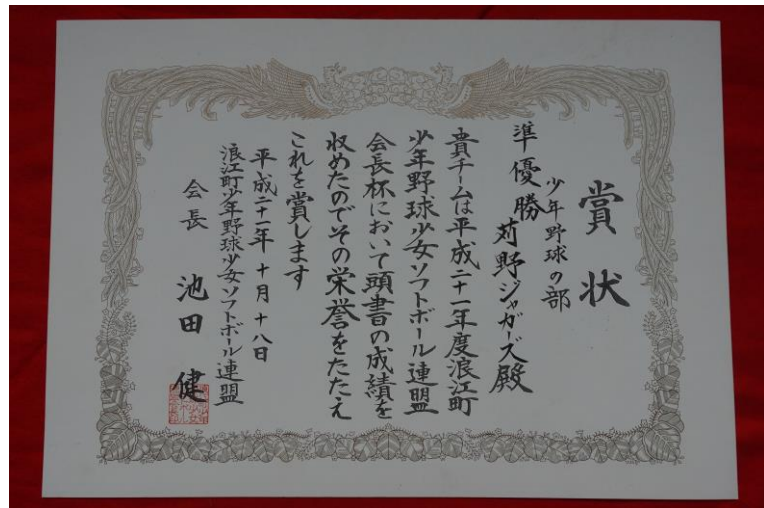 賞状
少年野球の部
準優勝
苅野ジャガーズ殿
貴チームは平成二十一年度浪江町
少年野球少女ソフトボール連盟
会長杯において頭書の成績を
収めたのでその栄誉をたたえ
これを賞します
平成二十一年十月十八日
浪江町少年野球少女ソフトボール連盟
会長 池田 健